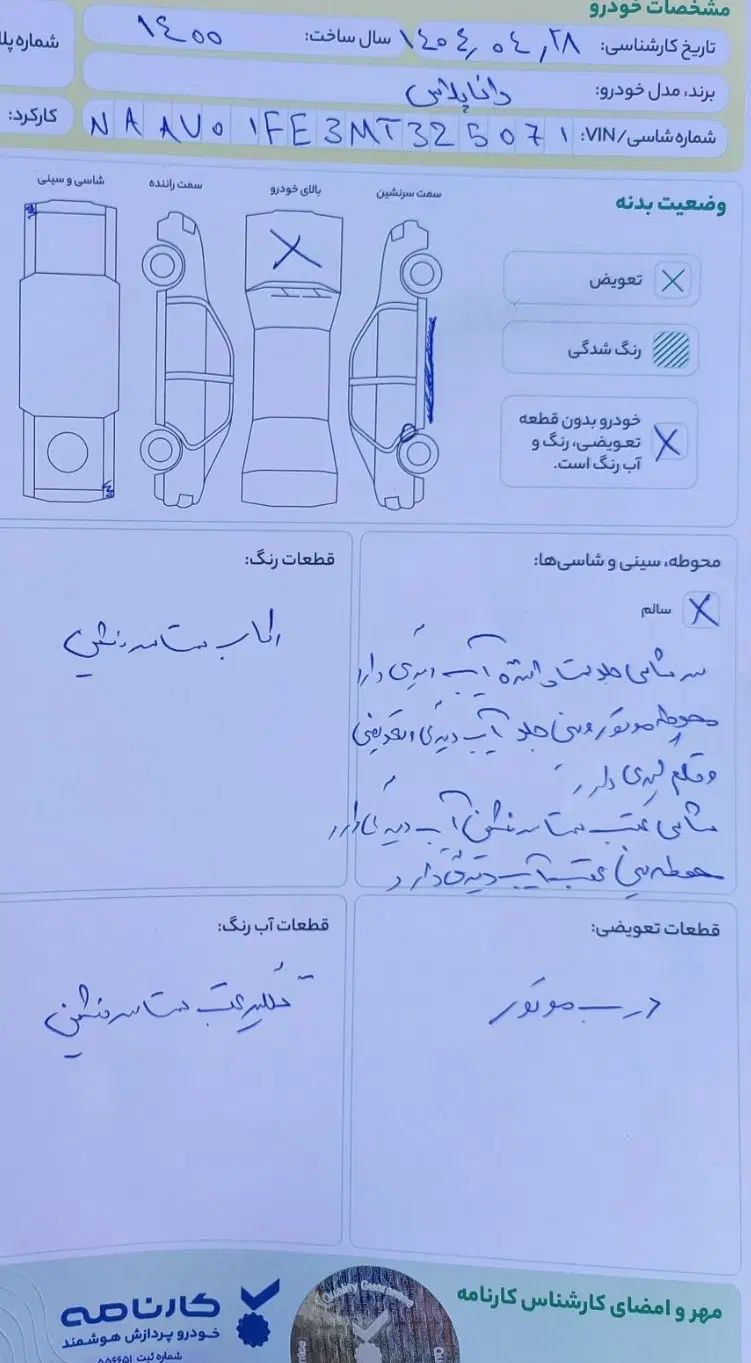 مشخصات خودرو
تاریخ کارشناسی: ۱۴۰۴٫۰۴٫۲۸ سال ساخت: ۱۴۰۰
شماره پلا
برند، مدل خودرو: دانا پلاس
شماره شاسی/VIN: NAAU01FE3MT325071
کارکرد:
وضعیت بدنه
تعویض
رنگ شدگی
خودرو بدون قطعه
تعویضی، رنگ و
آب رنگ است.
سمت سرنشین
بالای خودرو
سمت راننده
شاسی و سینی
محوطه، سینی و شاسی‌ها:
سالم
سر شاسی جلو سمت راننده آسیب دارد
محوطه موتور سینی جلو آسیب دیدگی تعویضی
و قلم گیری دارد
شاسی عقب سمت سرنشین آسیب دیدگی دارد
محوطه سینی عقب آسیب دیدگی دارد
قطعات رنگ:
رکاب سمت سرنشین
قطعات تعویضی:
درب موتور
قطعات آب رنگ:
گلگیر عقب سمت سرنشین
مهر و امضای کارشناس کارنامه
کارنامه
خودرو پردازش هوشمند
شماره ثبت ۵۵۶۶۵۱